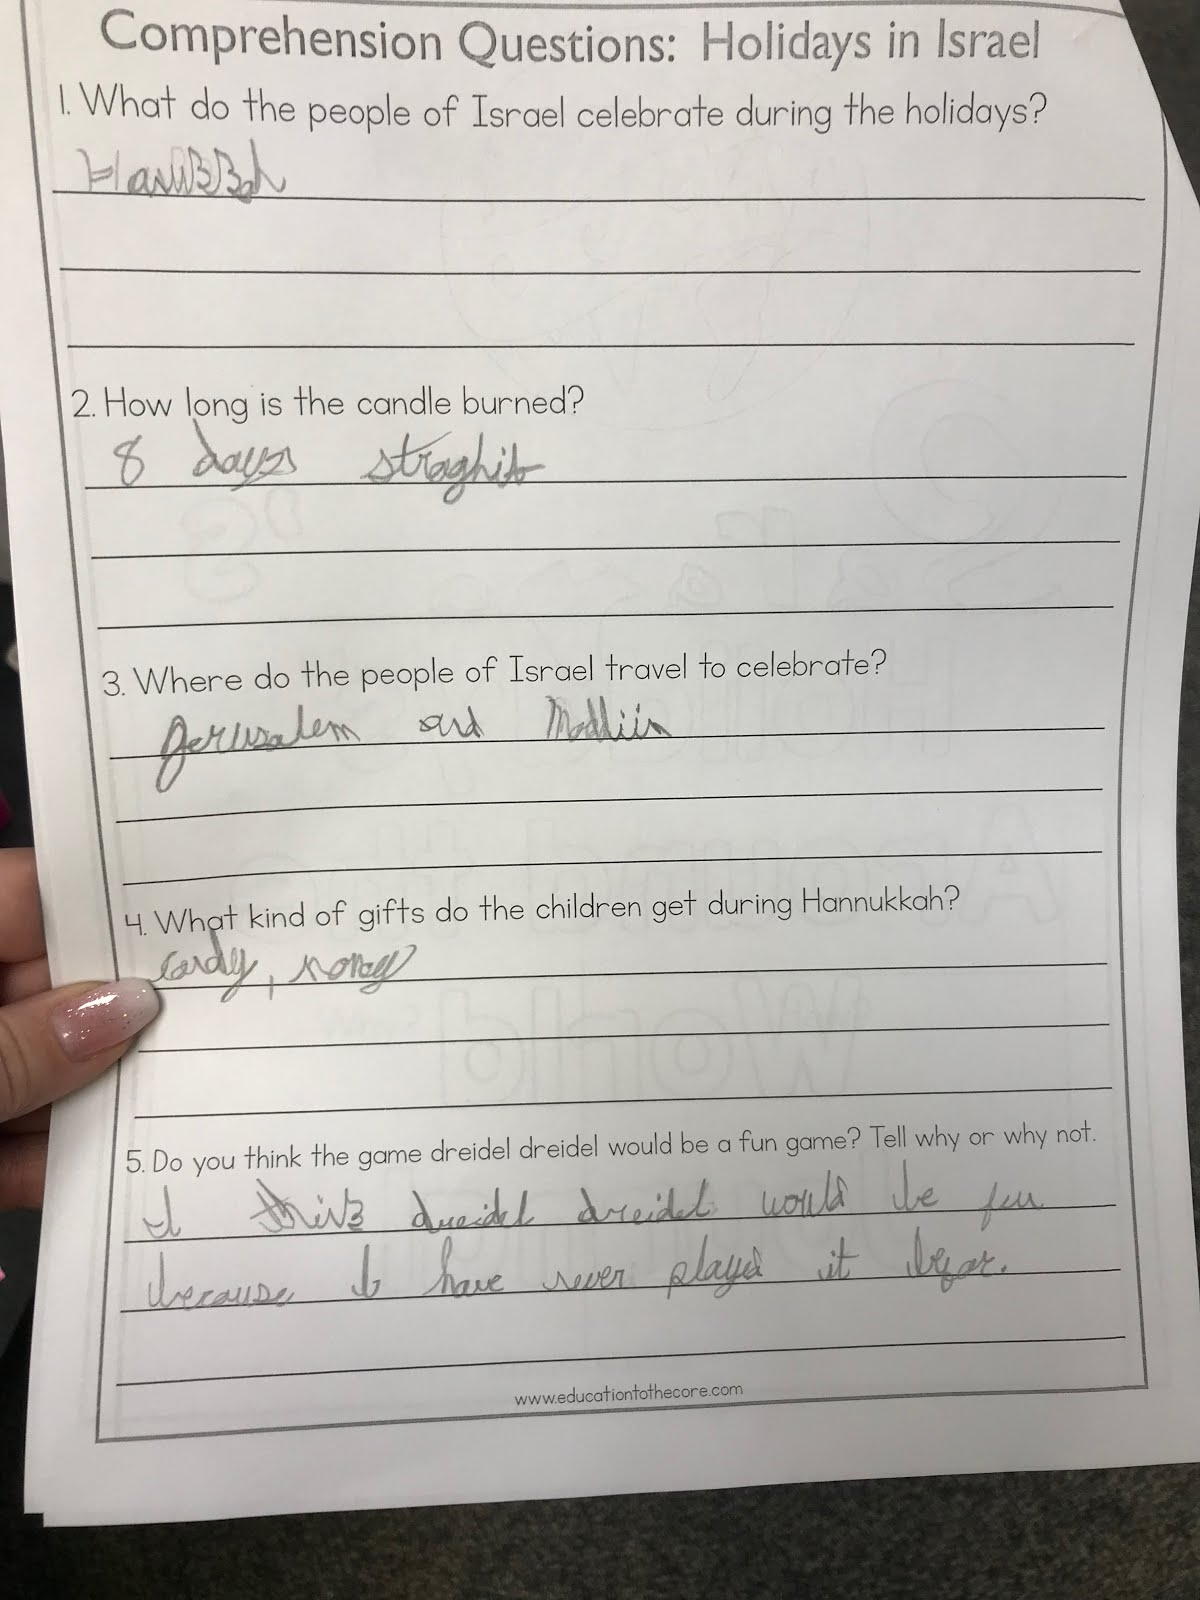 Comprehension Questions: Holidays in Israel
1. What do the people of Israel celebrate during the holidays?
Hanukkah
2. How long is the candle burned?
8 days straghit
3. Where do the people of Israel travel to celebrate?
Jerusalem and Modliin
4. What kind of gifts do the children get during Hannukkah?
candy, money
5. Do you think the game dreidel dreidel would be a fun game? Tell why or why not.
I think dreidel dreidel would be fun
because I have never played it befor.
www.educationtothecore.com